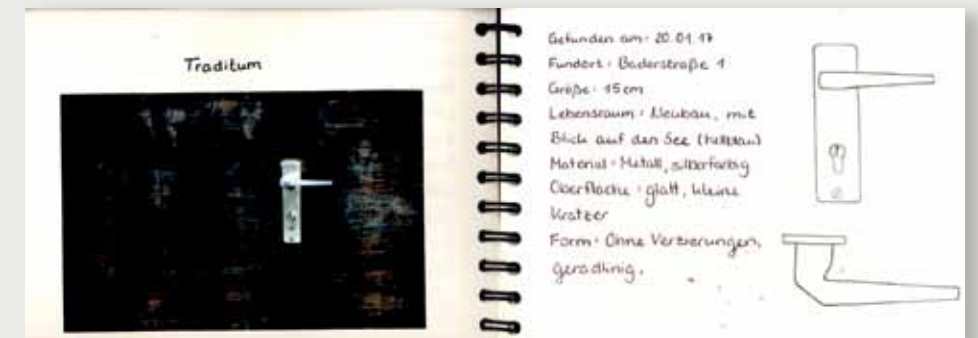 Traditum
Gefunden am: 20.01.17
Fundort: Baderstraße 1
Größe: 15 cm
Lebensraum: Neubau, mit
Blick auf den See
Material: Metall, silberfarbig
Oberfläche: glatt, kleine
Kratzer
Form: Ohne Verzierungen,
geradlinig.